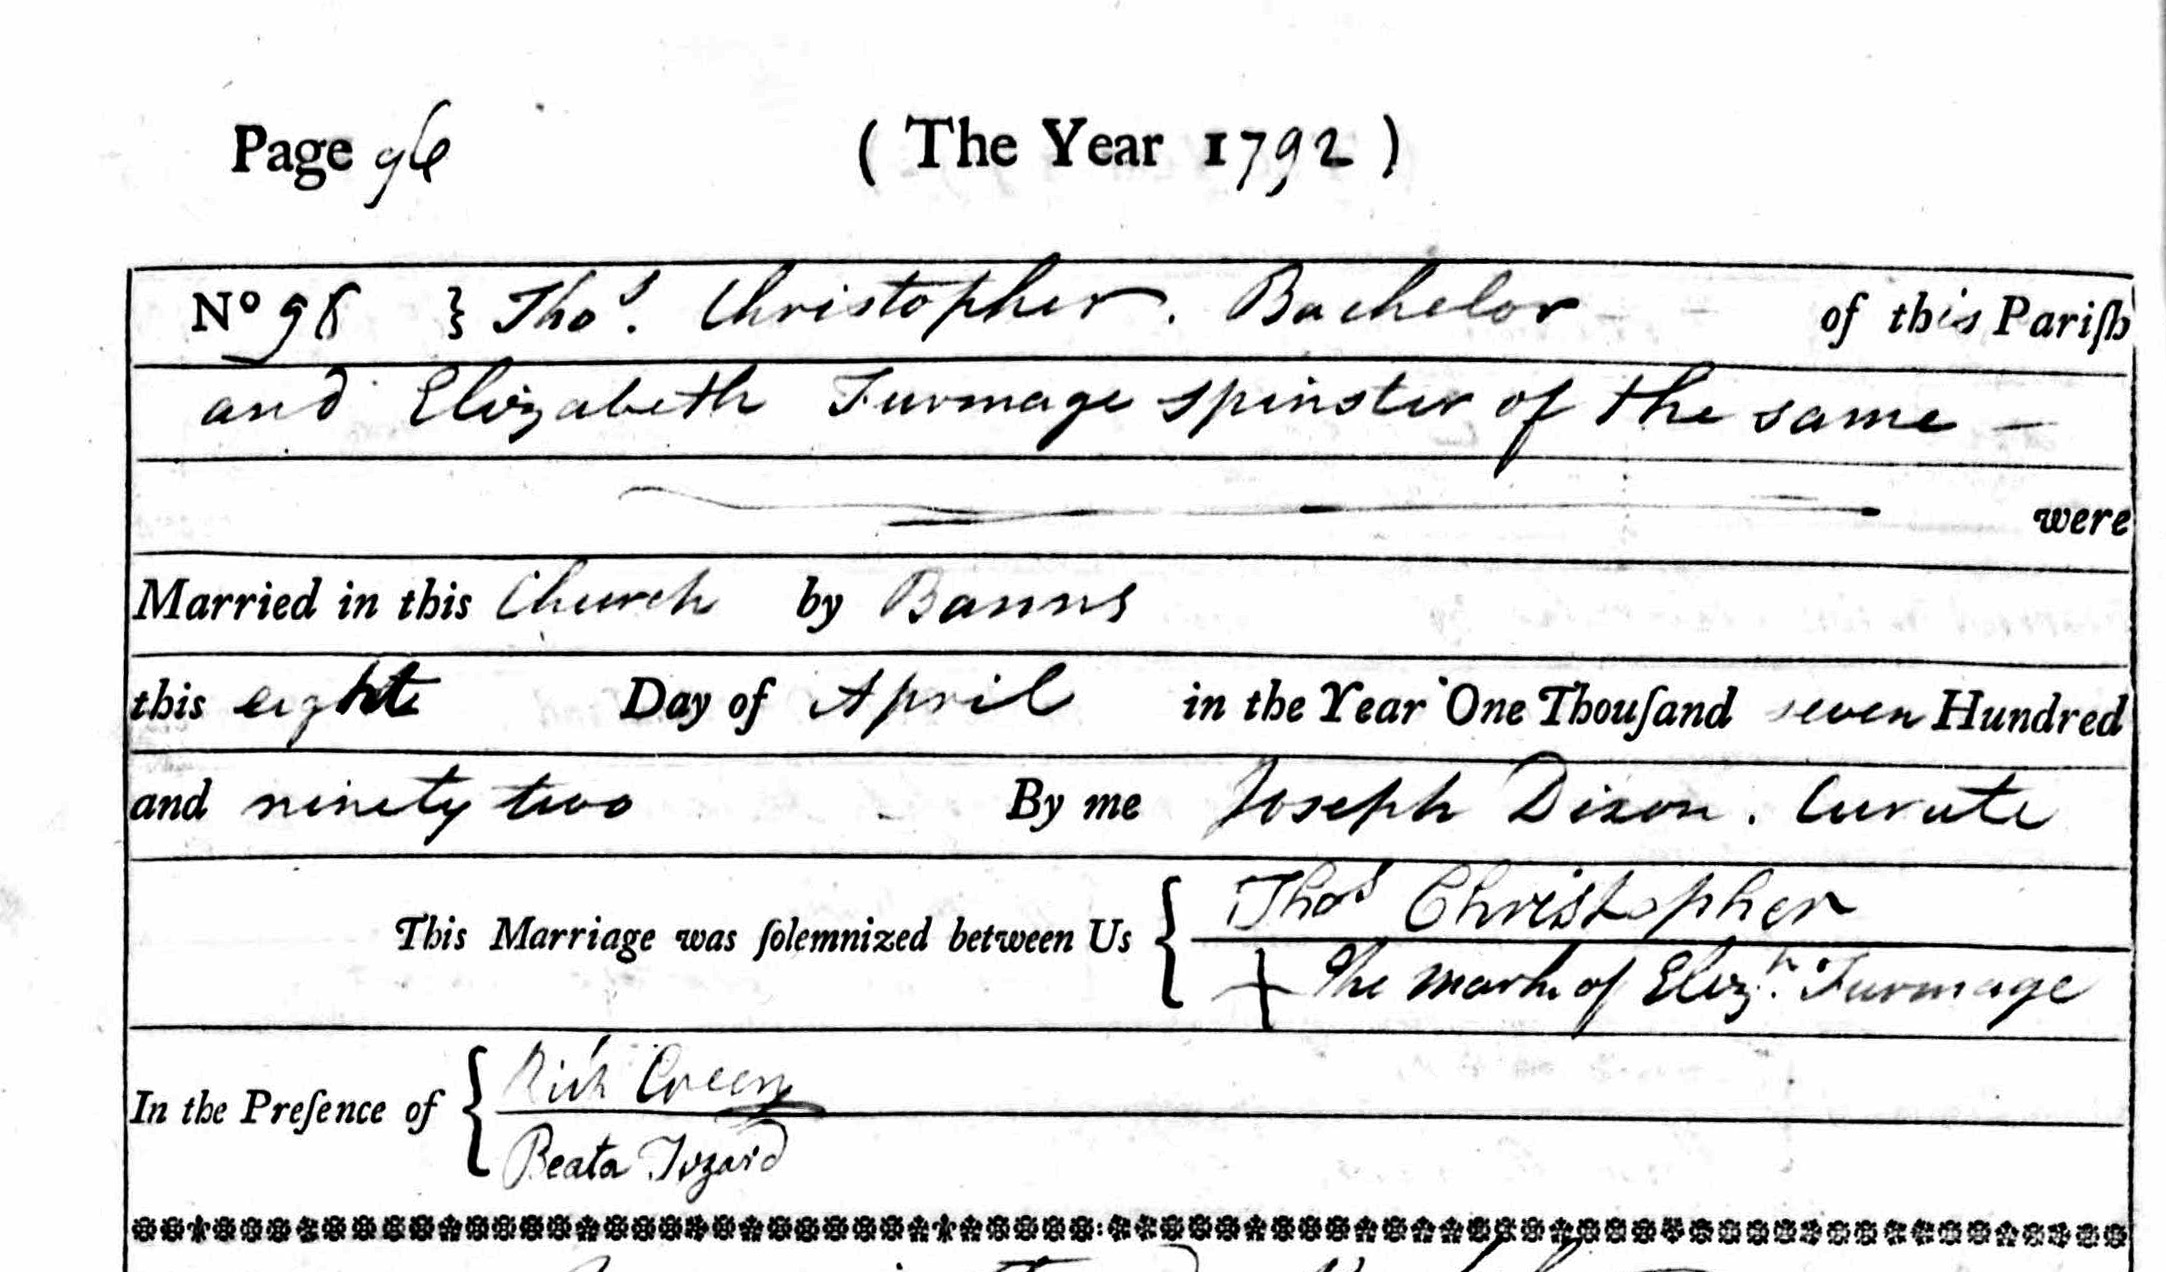 Page 96 ( The Year 1792 )
No 98 } Thos. Christopher. Bachelor of this Pariſh
and Elizabeth Furmage spinster of the same —
were
Married in this Church by Banns
this eight Day of April in the Year One Thouſand seven Hundred
and ninety two By me Joseph Dixon. Curate
This Marriage was ſolemnized between Us { Thos Christopher
+ The mark of Elizh. Furmage
In the Preſence of { Rich Green
Beata Izard